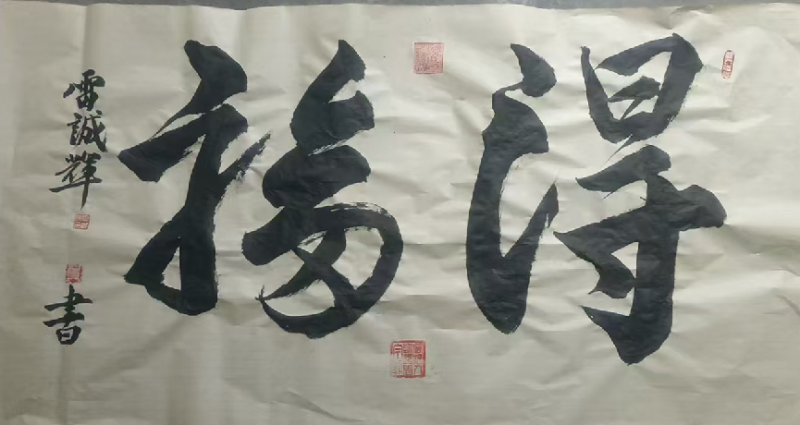 得福
雷誠輝
書